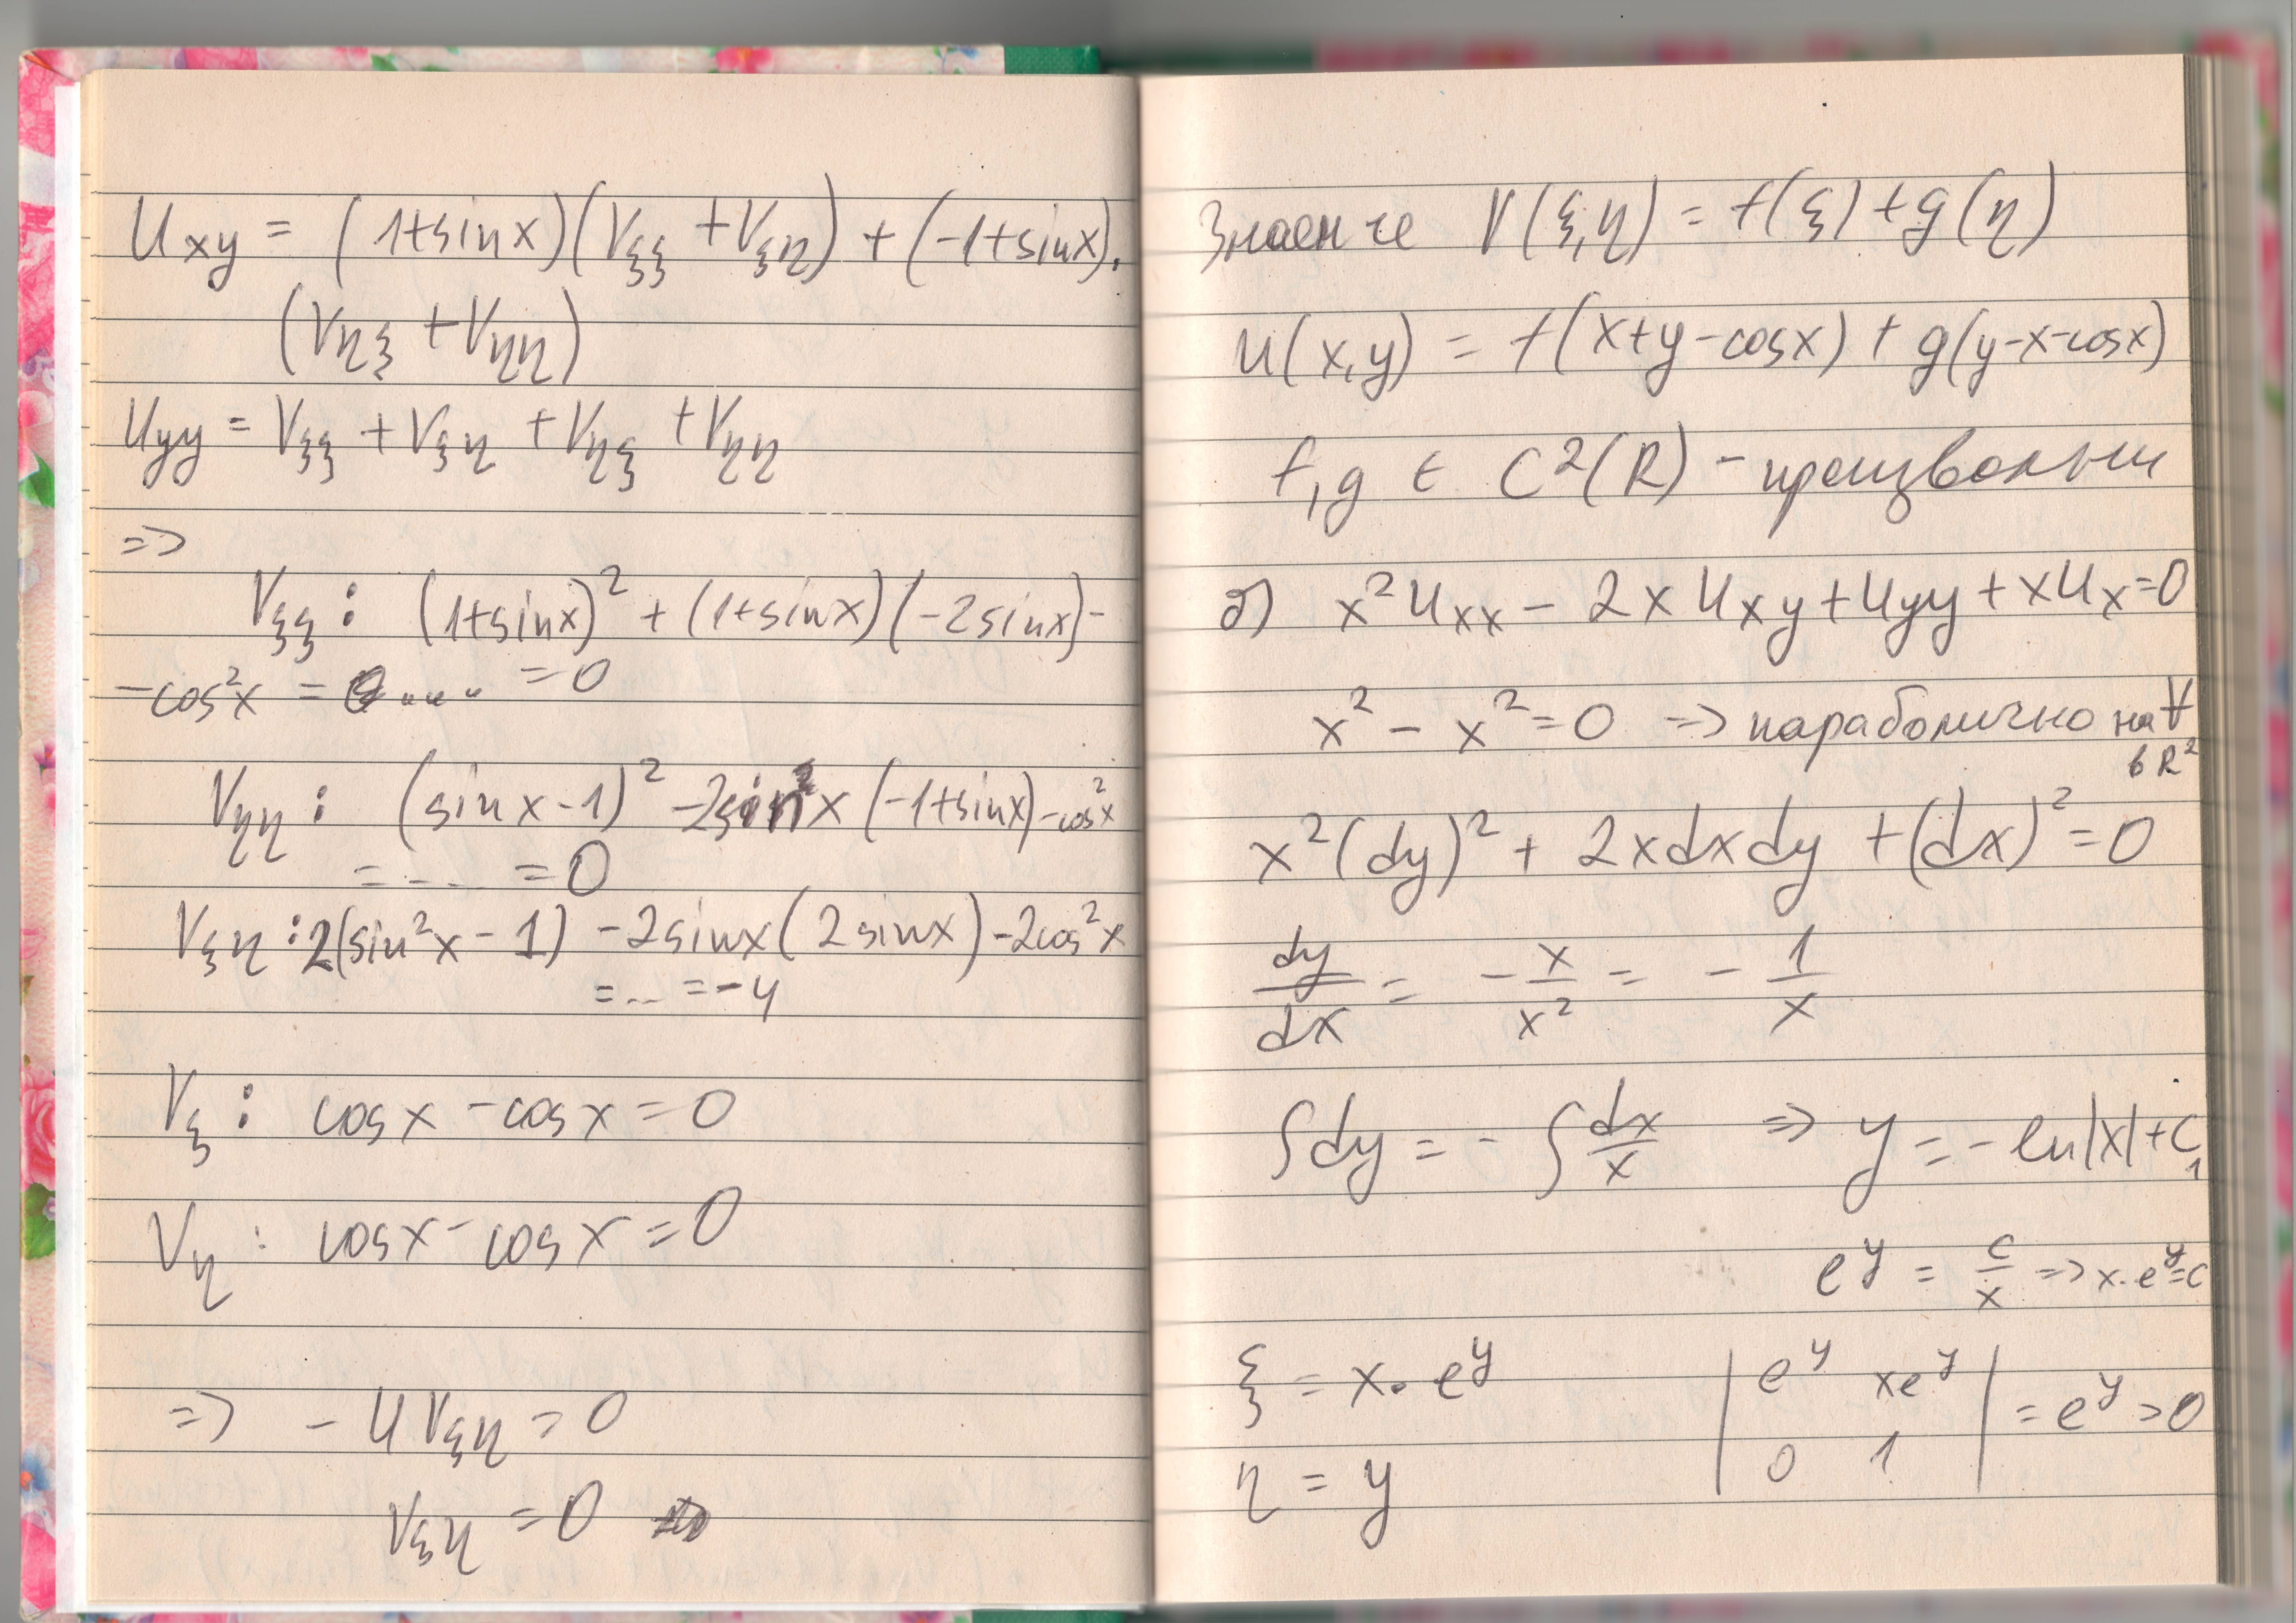 Uxy = (1+sinx)(Vξξ + Vξη) + (-1+sinx).
(Vηξ + Vηη)
Uyy = Vξξ + Vξη + Vηξ + Vηη
=>
Vξξ : (1+sinx)² + (1+sinx)(-2sinx) -
-cos²x = .... = 0
Vηη : (sinx-1)² -2sinx (-1+sinx) -cos²x
= ... = 0
Vξη : 2(sin²x - 1) -2sinx(2sinx) -2cos²x
= ... = -4
Vξ : cosx - cosx = 0
Vη : cosx - cosx = 0
=> - 4Vξη = 0
Vξη = 0
Знаем че V(ξ,η) = f(ξ) + g(η)
u(x,y) = f(x+y-cosx) + g(y-x-cosx)
f,g ∈ C²(R) - произволни
б) x²Uxx - 2xUxy + Uyy + xUx = 0
x² - x² = 0 => параболично на ∀
в R²
x²(dy)² + 2xdxdy + (dx)² = 0
dy/dx = - x/x² = - 1/x
∫dy = - ∫dx/x => y = - ln|x| + C₁
e^y = c/x => x.e^y = c
ξ = x.e^y | e^y xe^y | = e^y > 0
η = y | 0 1 |